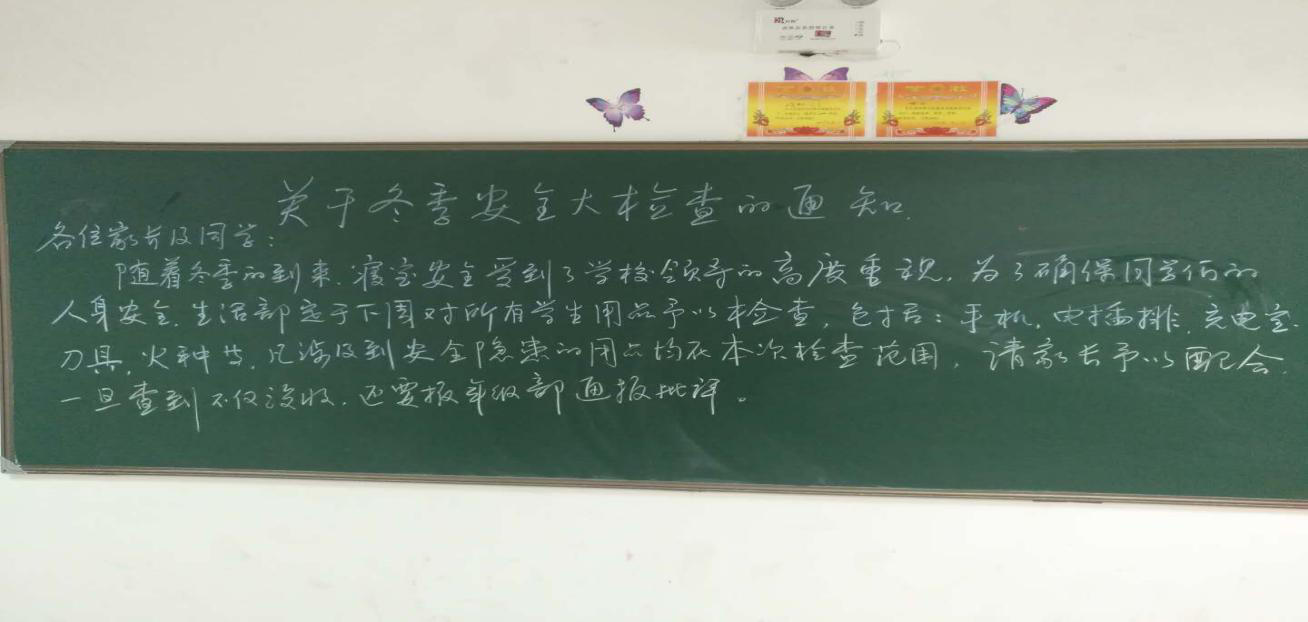 关于冬季安全大检查的通知
各位家长及同学:
随着冬季的到来,寝室安全受到了学校领导的高度重视,为了确保同学们的
人身安全,生活部定于下周对所有学生用品予以检查,包括:手机,电插排,充电宝,
刀具,火种等,凡涉及到安全隐患的用品均在本次检查范围,请家长予以配合,
一旦查到不仅没收,还要报年级部通报批评。